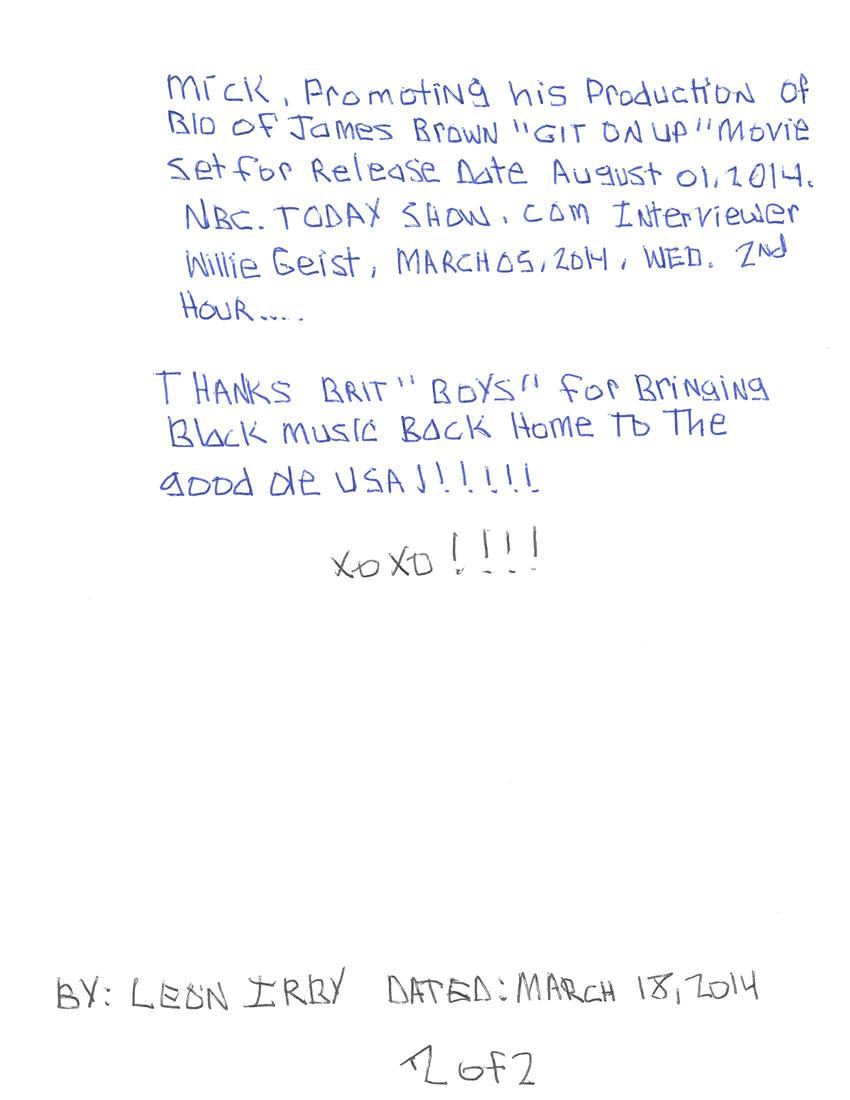 Mick, Promoting his Production of
BIO OF James Brown "GIT ON UP" Movie
set for Release Date August 01, 2014.
NBC. TODAY SHOW. COM Interviewer
Willie Geist, MARCH 05, 2014, WED. 2nd
HOUR.....
THANKS BRIT "BOYS" for Bringing
Black music Back Home To The
good ole USA!!!!!!!
XOXO!!!!
BY: LEON IRBY DATED: MARCH 18, 2014
2 of 2